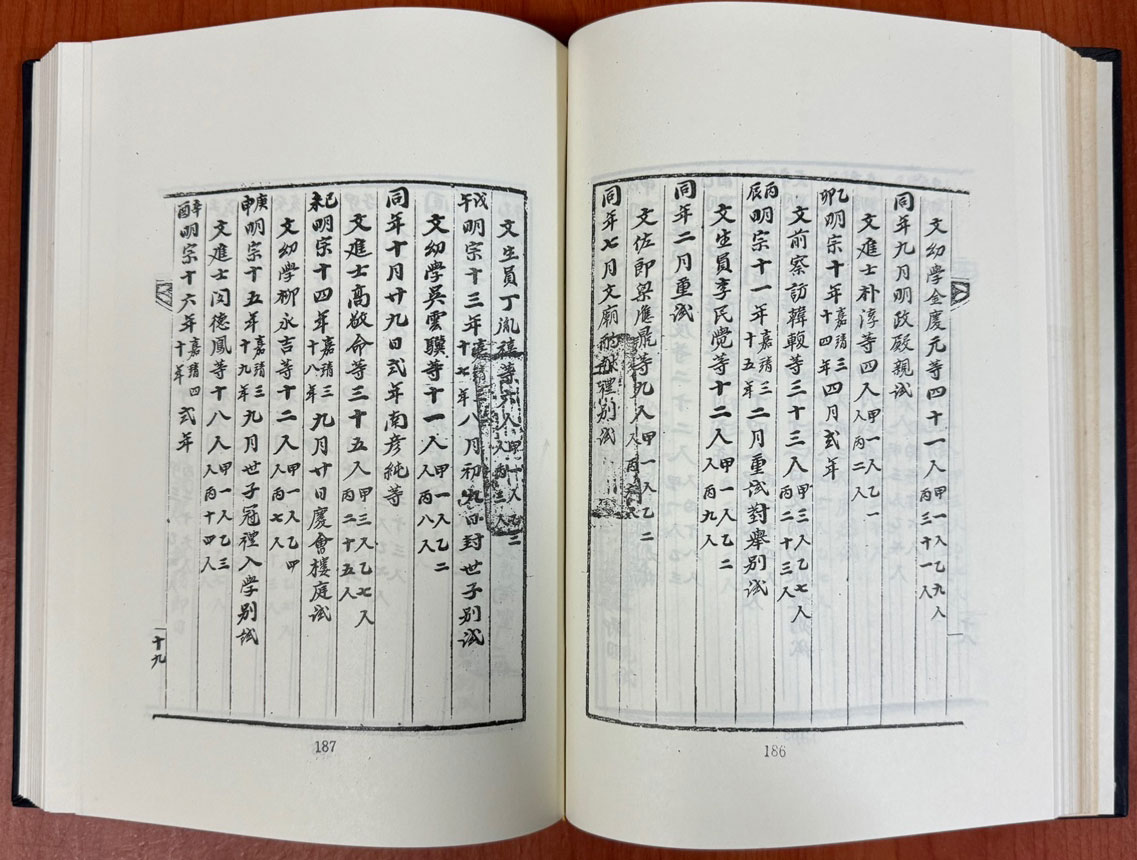 文幼學金慶元等四十一人甲一人乙九人丙三十一人
同年九月明政殿親試
文進士朴淳等四人甲一人乙一人丙二人
乙卯明宗十年嘉靖三十四年四月式年
文前察訪韓輹等三十三人甲三人乙七人丙二十三人
丙辰明宗十一年嘉靖三十五年二月重試對舉別試
文生員李民覺等十二人甲一人乙二人丙九人
同年二月重試
文佐郎梁應鼎等九人甲一人乙二人丙六人
同年七月文廟酌獻禮別試
186
文生員丁胤禧等六人甲一人乙二人丙三人
戊午明宗十三年嘉靖三十七年八月初九日封世子別試
文幼學吳雲驥等十一人甲一人乙二人丙八人
同年十月廿九日式年南彦純等
文進士高敬命等三十五人甲三人乙七人丙二十五人
己未明宗十四年嘉靖三十八年九月廿日慶會樓庭試
文幼學柳永吉等十二人甲一人乙四人丙七人
庚申明宗十五年嘉靖三十九年九月世子冠禮入学别試
文進士閔德鳳等十八人甲一人乙三人丙十四人
辛酉明宗十六年嘉靖四十年式年
十九
187